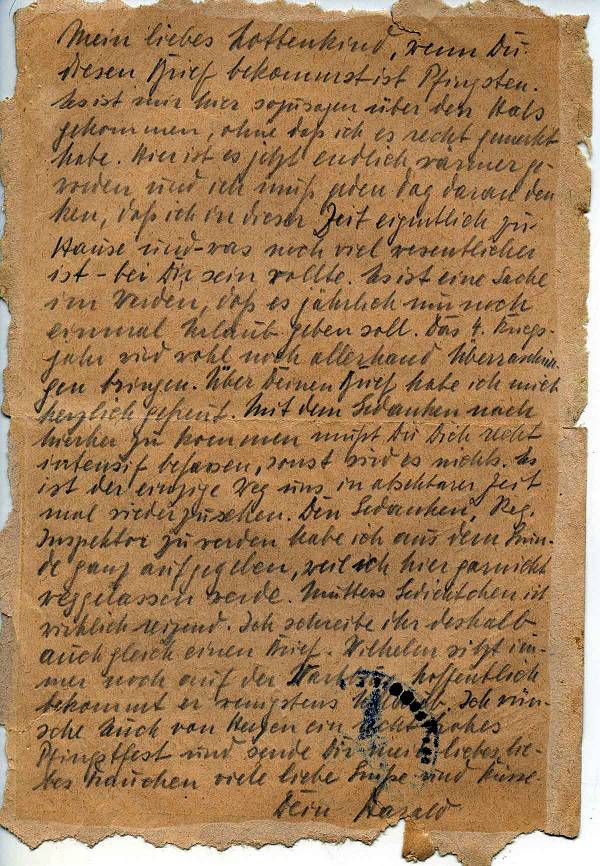 Mein liebes Lottenkind, wenn Du
diesen Brief bekommst ist Pfingsten.
Es ist mir hier sozusagen über den Hals
gekommen, ohne daß ich es recht gemerkt
habe. Hier ist es jetzt endlich warm ge-
worden und ich muß jeden Tag daran den
ken, daß ich in dieser Zeit eigentlich zu
Hause und – was noch viel wesentlicher
ist – bei Dir sein wollte. Es ist eine Sache
im Werden, daß es jährlich nur noch
einmal Urlaub geben soll. Das 4. Kriegs-
jahr wird wohl noch allerhand Überraschun-
gen bringen. Über Deinen Brief habe ich mich
herzlich gefreut. Mit dem Gedanken nach
hierher zu kommen mußt Du Dich recht
intensif befassen, sonst wird es nichts. Es
ist der einzige Weg uns in absehbarer Zeit
mal wiederzusehen. Den Gedanken Reg.
Inspektor zu werden habe ich aus dem Grun-
de ganz aufgegeben, weil ich hier garnicht
weggelassen werde. Mutters Gedichtchen ist
wirklich reizend. Ich schreibe ihr deshalb
auch gleich einen Brief. Wilhelm sitzt im-
mer noch auf der hoffentlich
bekommt er wenigstens Urlaub. Ich wün-
sche Euch von Herzen ein recht frohes
Pfingstfest und sende Dir mein liebes, lie-
bes viele liebe Grüße und Küsse
Dein Harald